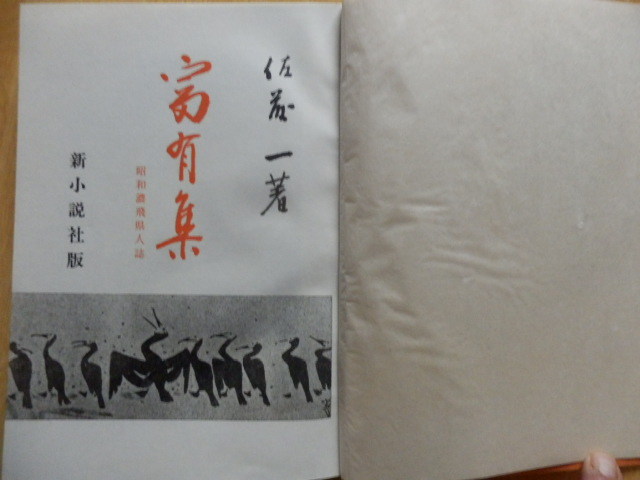 佐藤一著
富有集
昭和濃飛県人誌
新小説社版